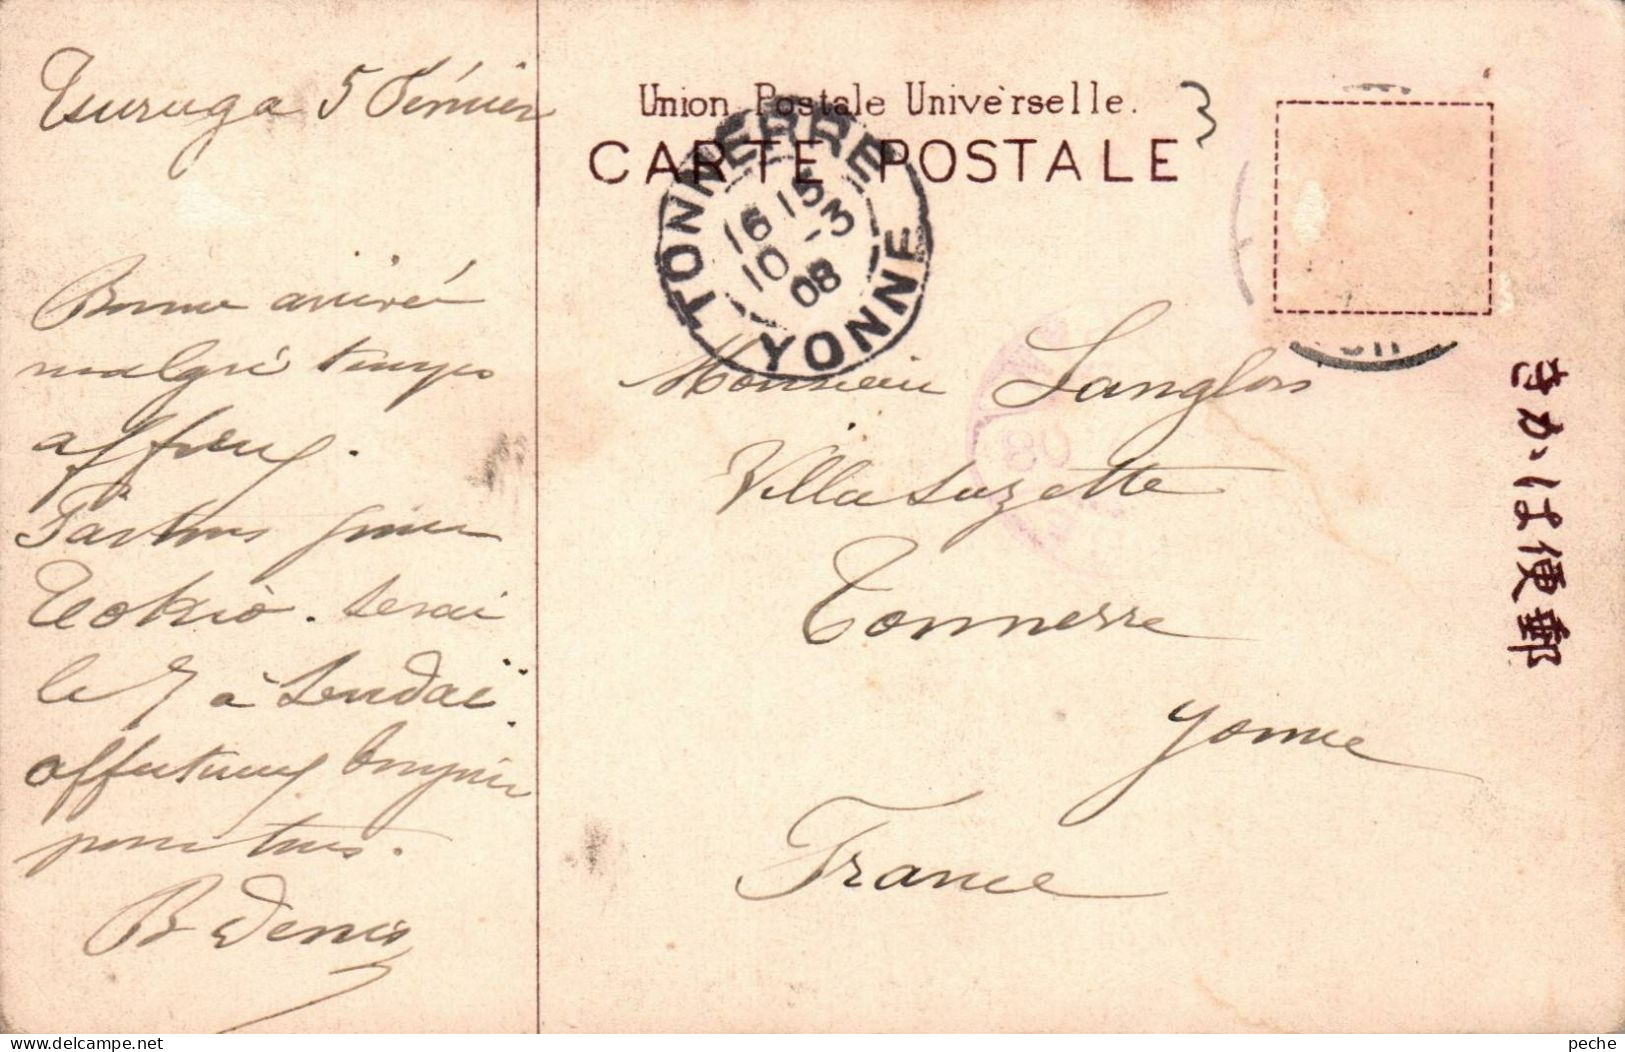 Tsuruga 5 Février
Bonne arrivée
malgré temps
affreux.
Partons pour
Tokio. Serai
le 7 à Sendaï
affectueux
pour tous.
B Denis
Union Postale Universelle.
CARTE POSTALE
3
TONNERRE
16 15
10 -3
08
YONNE
Monsieur Langlois
Villa Suzette
Tonnerre
Yonne
France
08
きかは便郵
peche